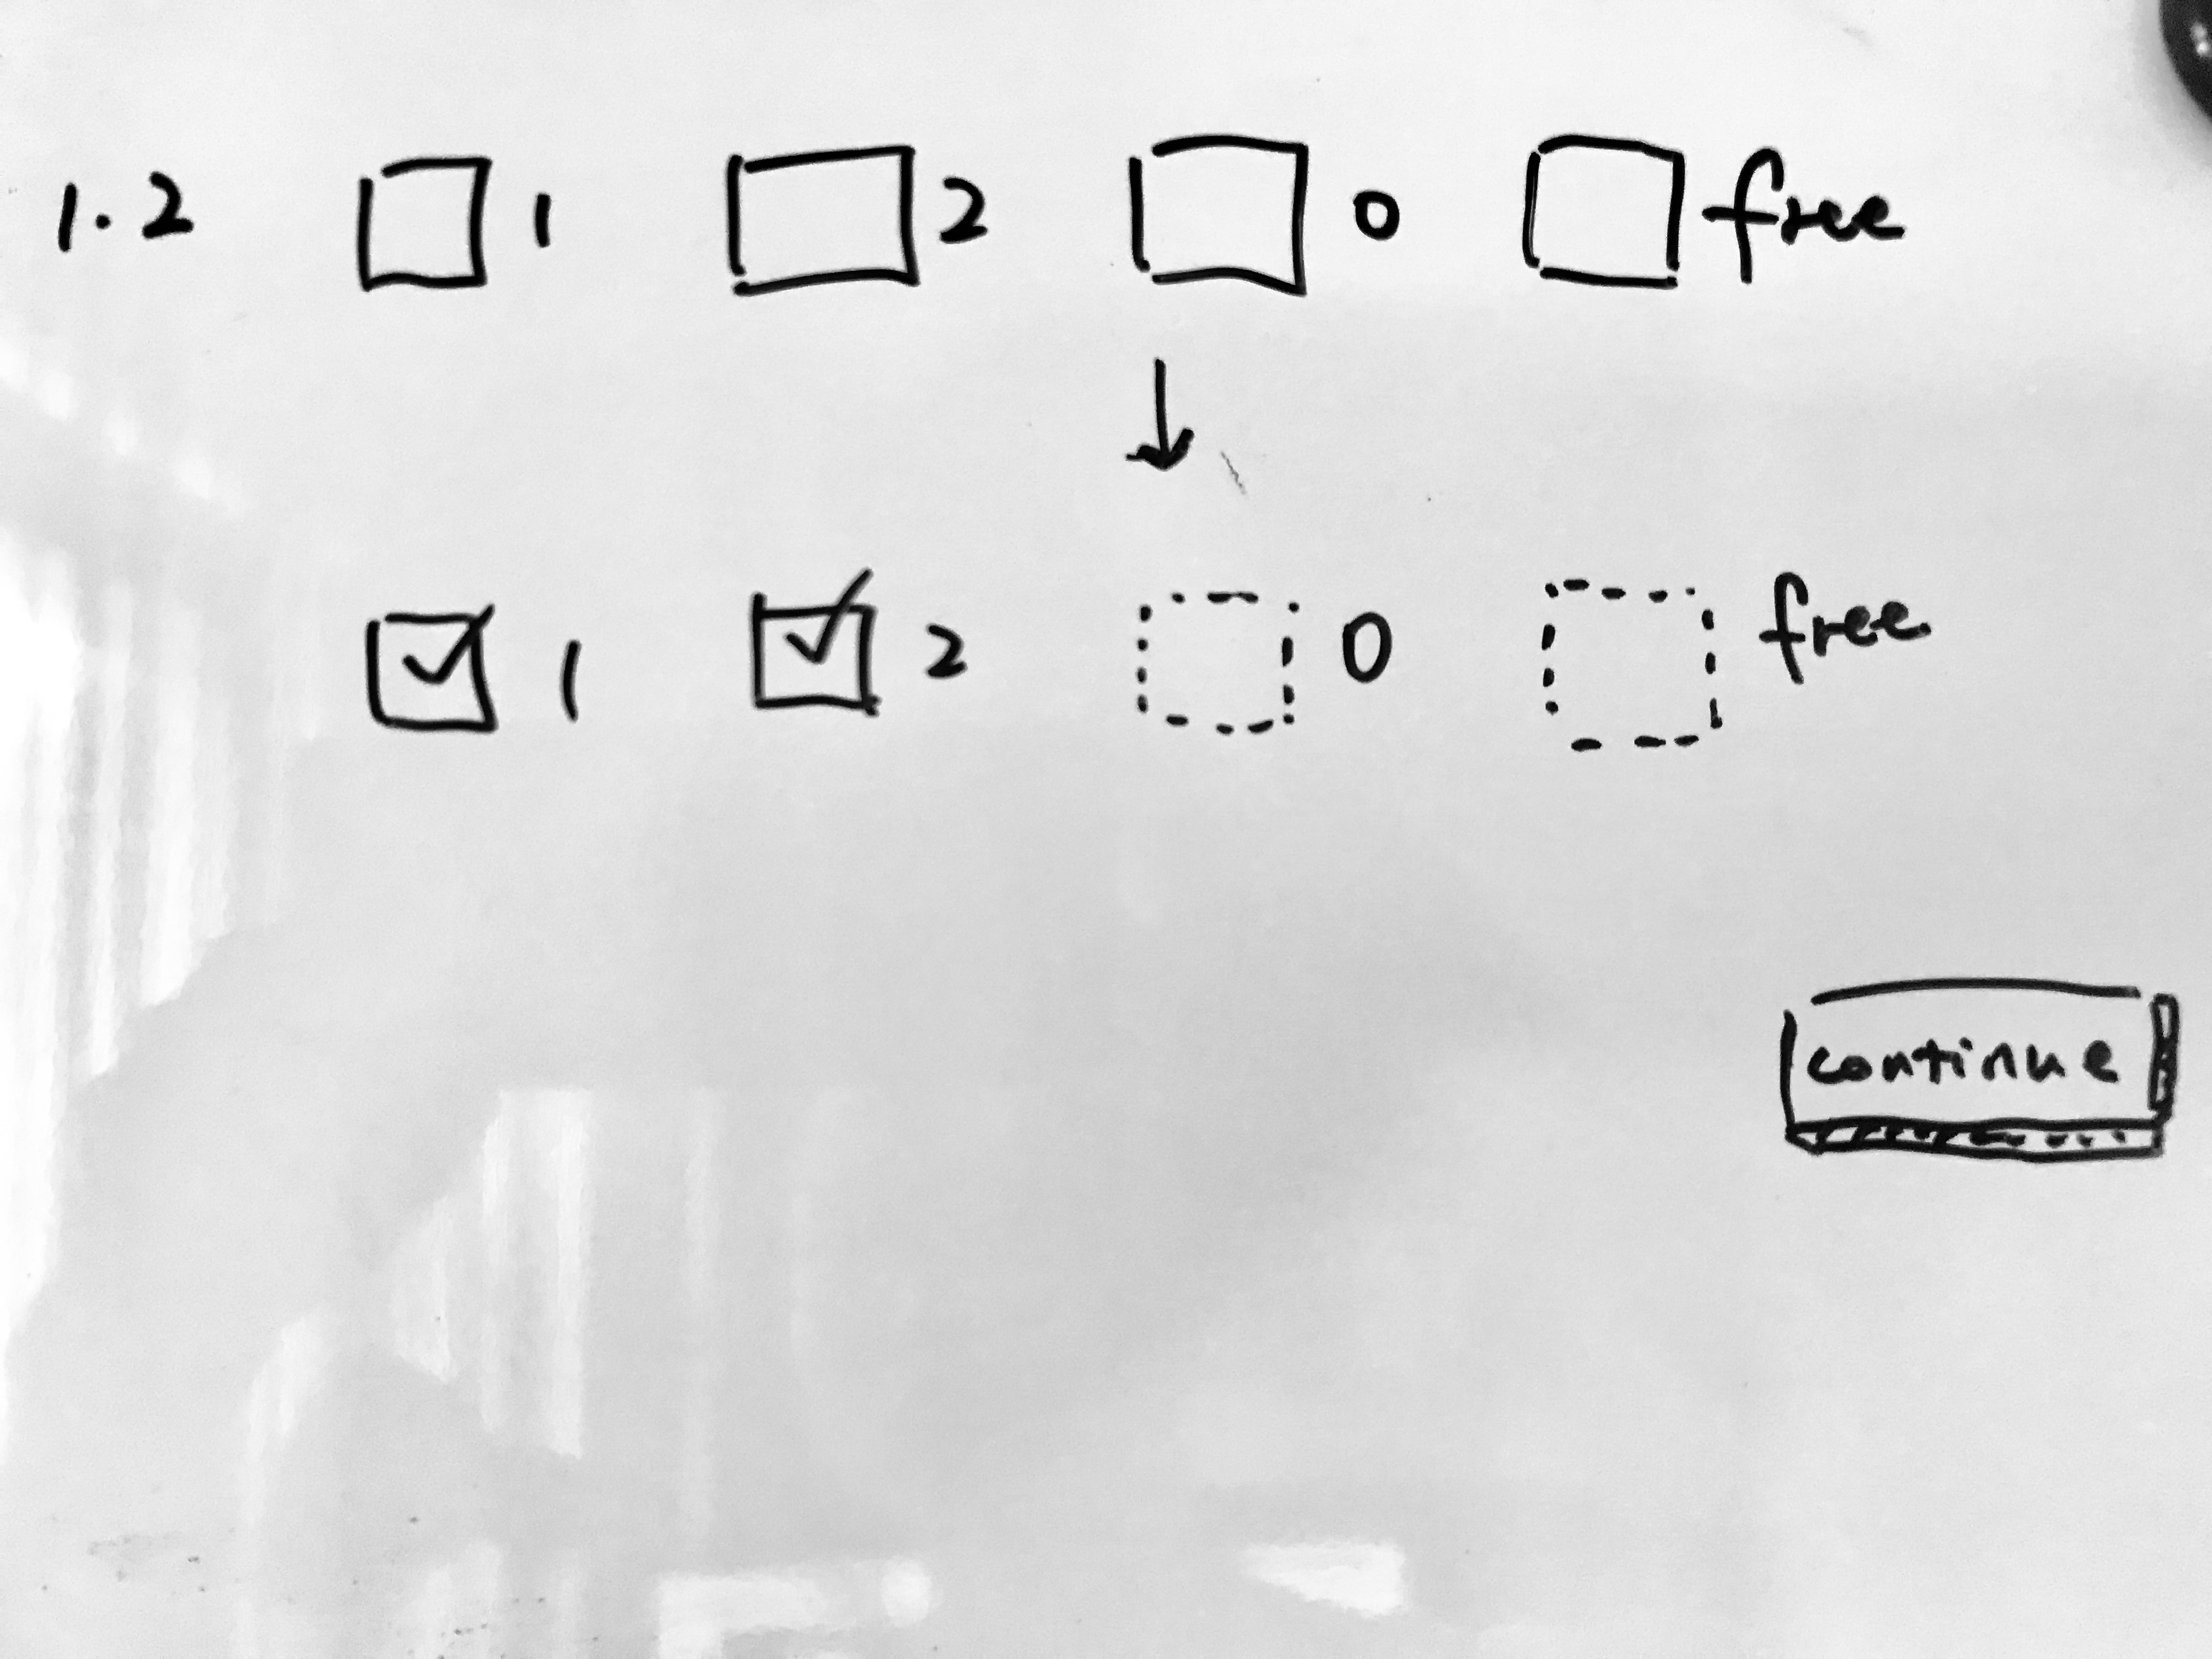 1.2 1 2 0 free
1 2 0 free
continue